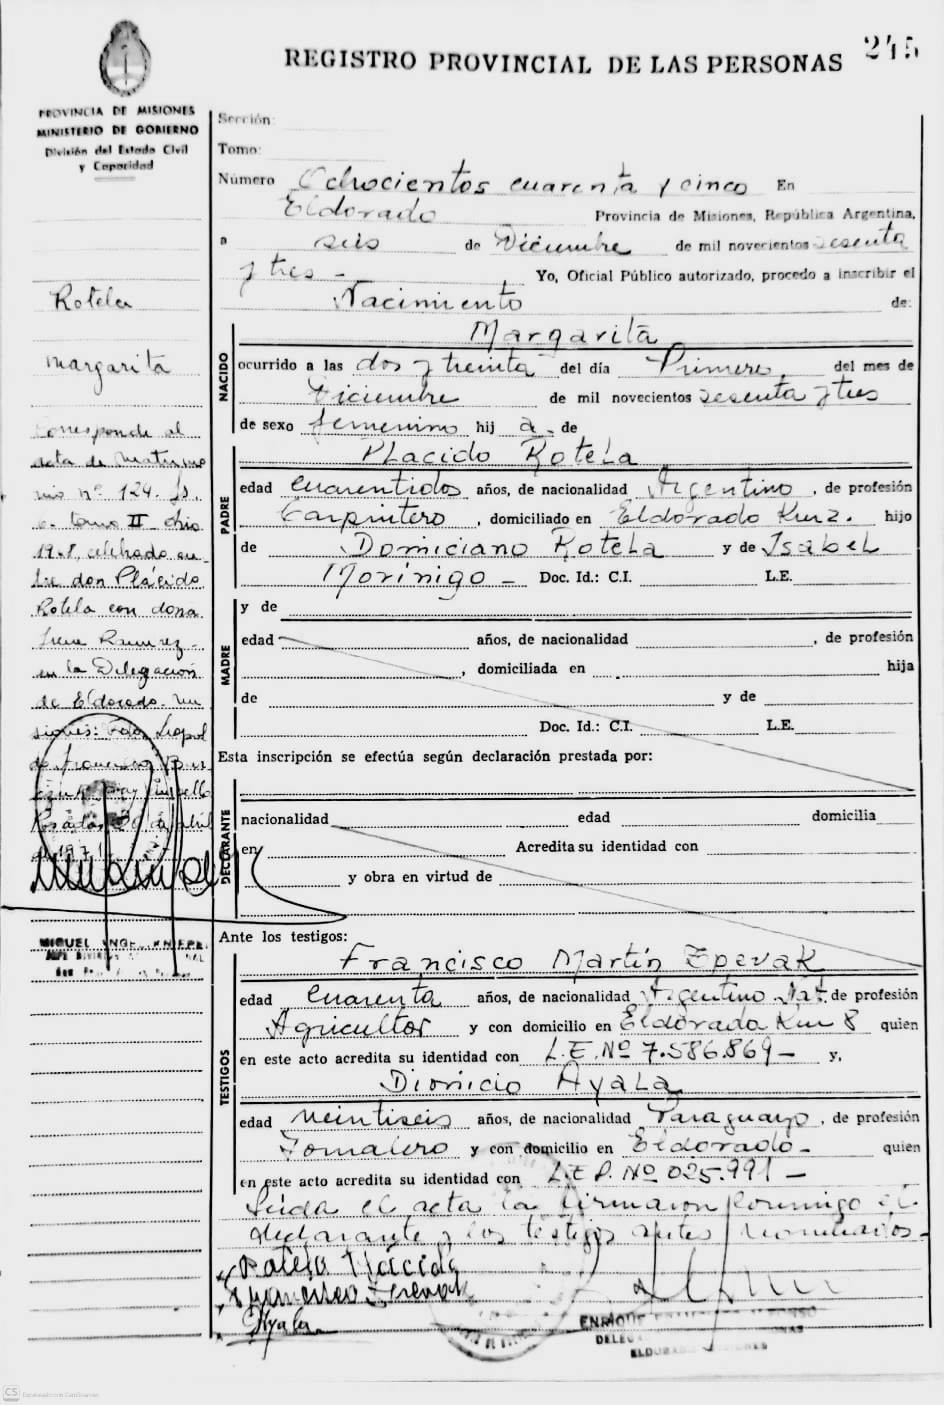 245
REGISTRO PROVINCIAL DE LAS PERSONAS
PROVINCIA DE MISIONES
MINISTERIO DE GOBIERNO
División del Estado Civil
y Capacidad
Sección:
Tomo:
Número Ochocientos cuarenta y cinco En
Eldorado Provincia de Misiones, República Argentina,
a seis de Diciembre de mil novecientos sesenta
y tres - Yo, Oficial Público autorizado, procedo a inscribir el
Nacimiento de:
Rotela
Margarita
Corresponde al
acta de matrimo
nio nº 124. fs.
tomo II año
celebrado en
tre don Plácido
Rotela con doña
Irene Ramirez -
en la Delegación
de Eldorado. Mi
siones:
MIGUEL
NACIDO
Margarita
ocurrido a las dos y treinta del día Primero del mes de
Diciembre de mil novecientos sesenta y tres
de sexo femenino hij a - de
PADRE
Placido Rotela
edad cuarentidos años, de nacionalidad Argentino, de profesión
Carpintero, domiciliado en Eldorado Km 2. hijo
de Domiciano Rotela y de Isabel
Morínigo - Doc. Id.: C.I. L.E.
MADRE
y de
edad años, de nacionalidad , de profesión
, domiciliada en hija
de y de
Doc. Id.: C.I. L.E.
Esta inscripción se efectúa según declaración prestada por:
DECLARANTE
nacionalidad edad domicilia
en Acredita su identidad con
y obra en virtud de
Ante los testigos:
TESTIGOS
Francisco Martín Zpevak
edad cuarenta años, de nacionalidad Argentino Nat. de profesión
Agricultor y con domicilio en Eldorado Km 8 quien
en este acto acredita su identidad con L.E. Nº 7.586.869 - y,
Dionicio Ayala
edad veintiseis años, de nacionalidad Paraguayo, de profesión
Jornalero y con domicilio en Eldorado - quien
en este acto acredita su identidad con Nº 025.991 -
Leída el acta la firmaron conmigo el
declarante y los testigos antes nombrados -
Rotela Plácido
Francisco Zpevak
Ayala
ENRIQUE
ELDORADO MISIONES
CS Escaneado con CamScanner